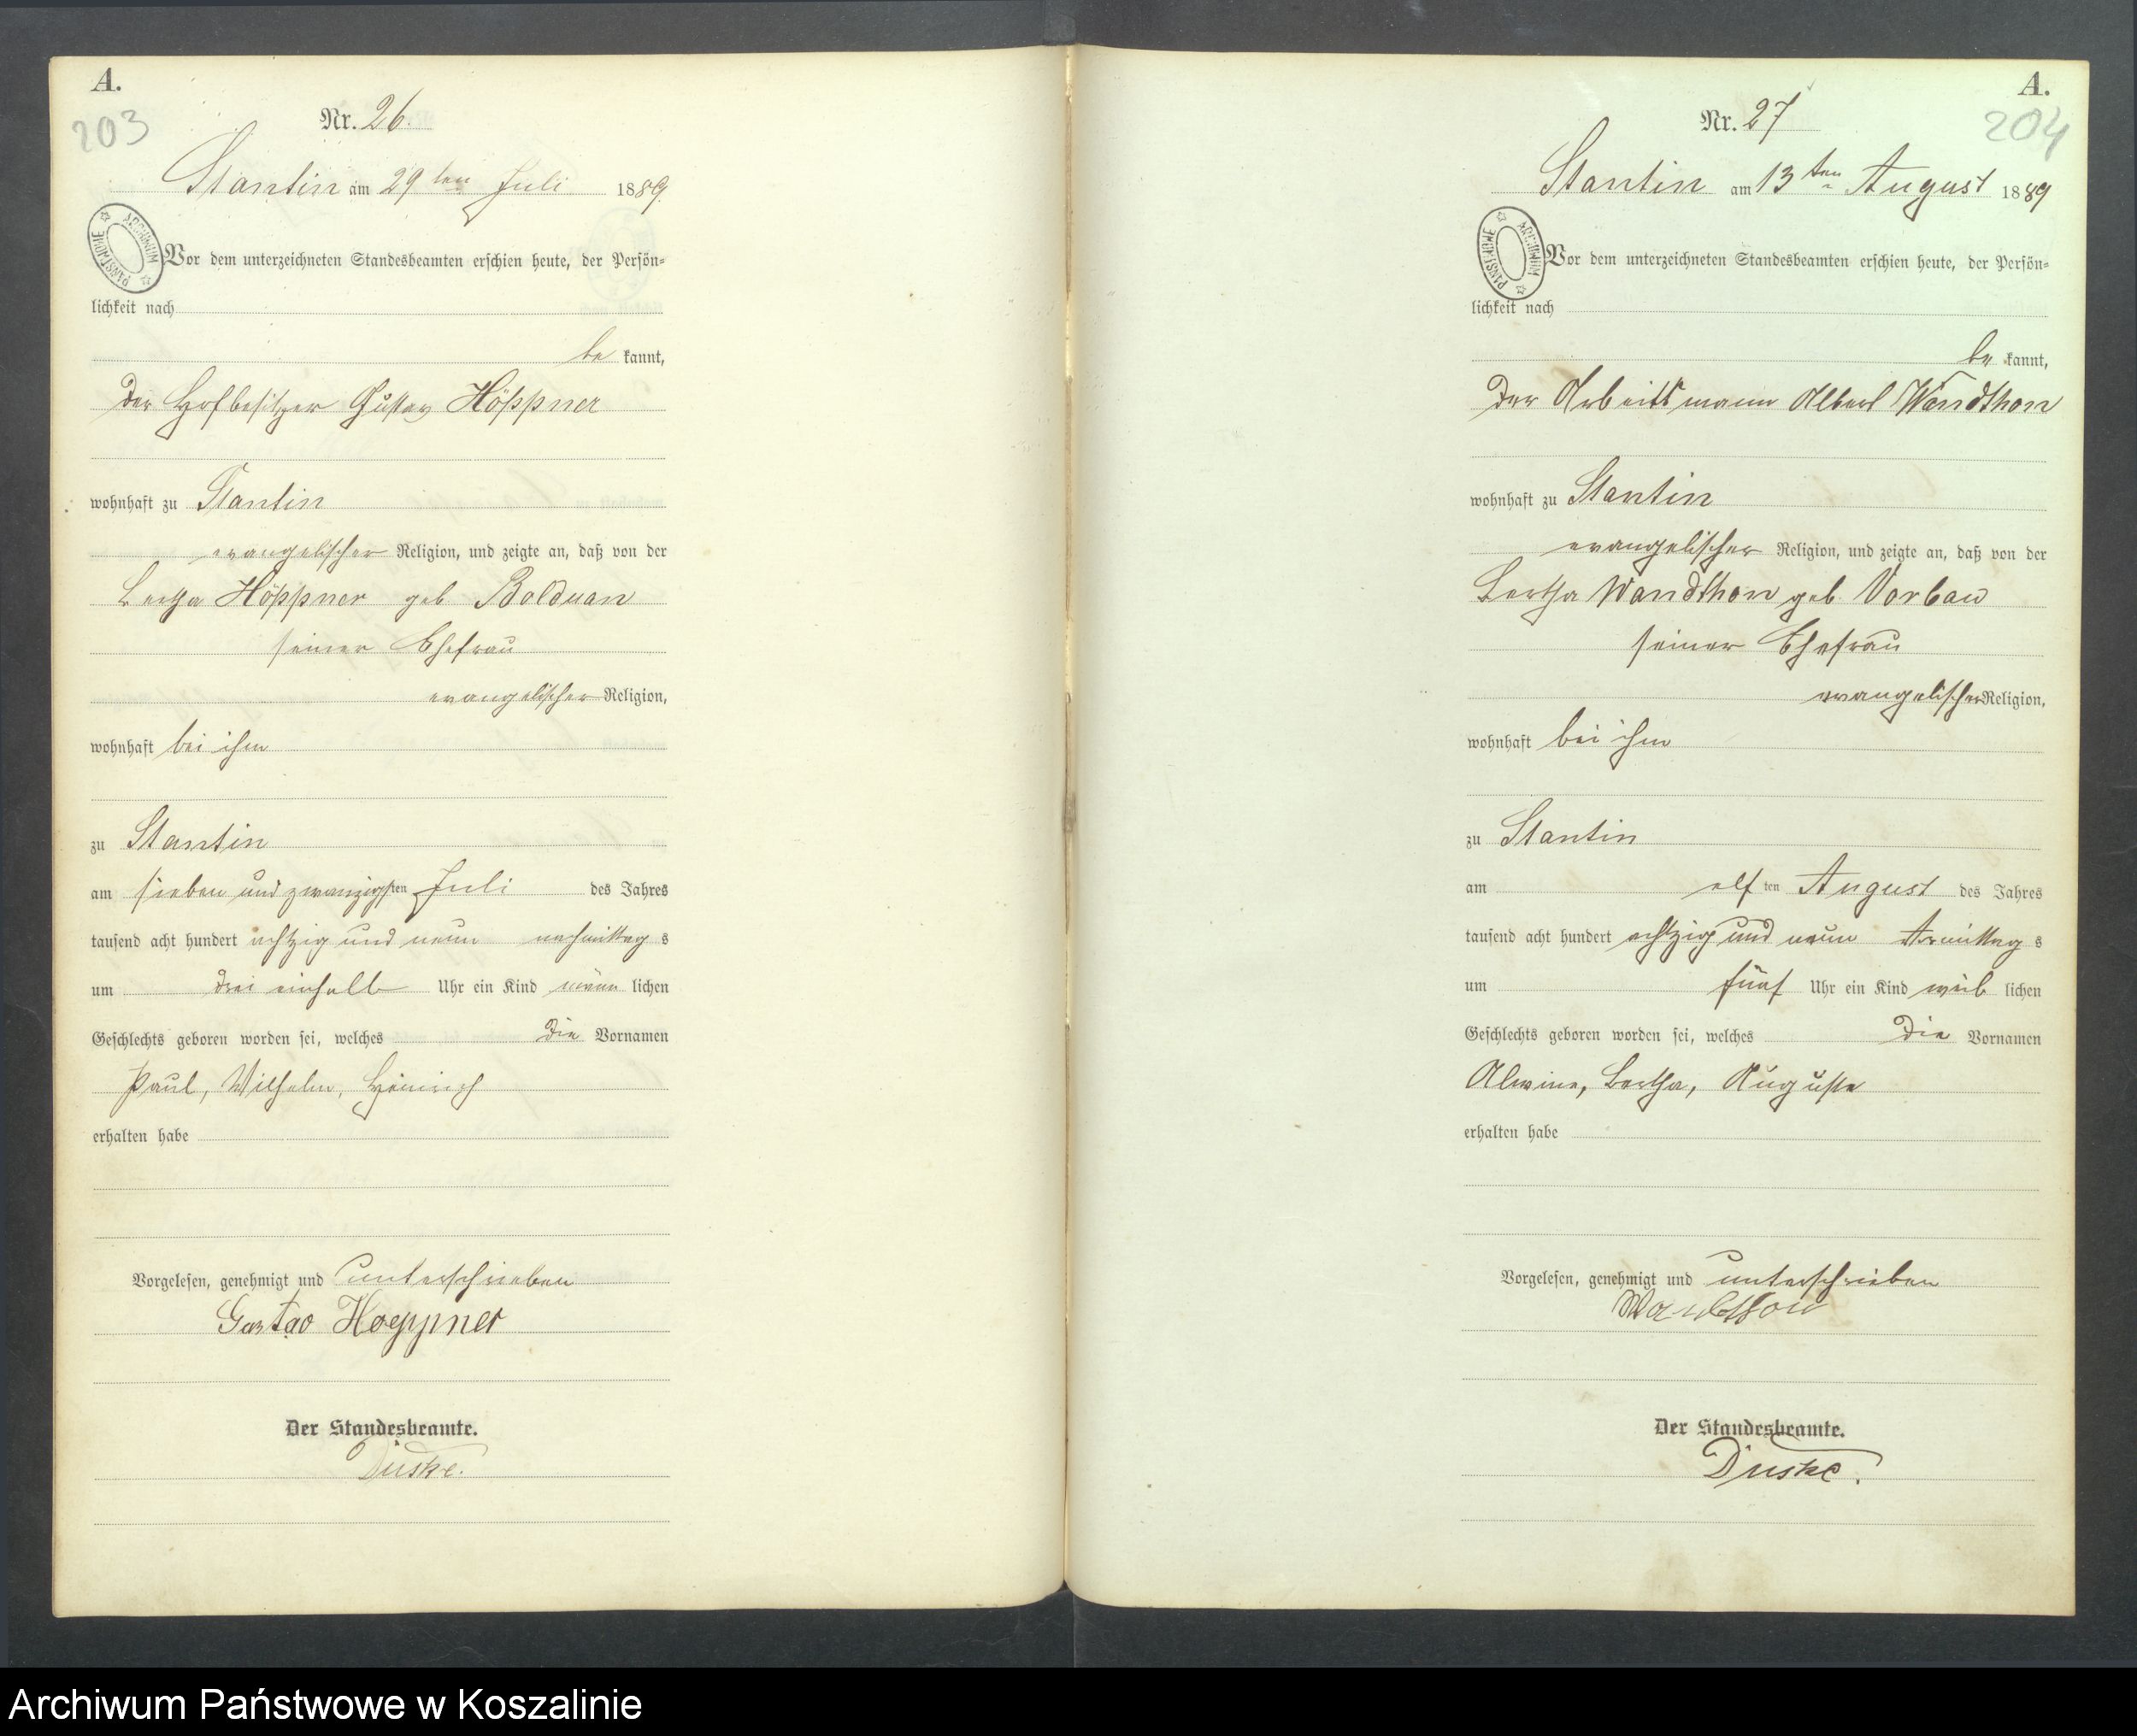 A.
203
Nr. 26.
Stantin am 29ten Juli 1889.
ARCHIWUM PAŃSTWOWE
Vor dem unterzeichneten Standesbeamten erschien heute, der Persön-
lichkeit nach
be kannt,
der Hofbesitzer Gustav Höppner
wohnhaft zu Stantin
evangelischer Religion, und zeigte an, daß von der
Bertha Höppner geb Bolduan
seiner Ehefrau
evangelischer Religion,
wohnhaft bei ihm
zu Stantin
am sieben und zwanzigsten Juli des Jahres
tausend acht hundert achtzig und neun nachmittag s
um drei einhalb Uhr ein Kind männ lichen
Geschlechts geboren worden sei, welches die Vornamen
Paul, Wilhelm, Heinrich
erhalten habe
Vorgelesen, genehmigt und unterschrieben
Gustav Hoeppner
Der Standesbeamte.
Duske.
A.
204
Nr. 27
Stantin am 13ten August 1889
ARCHIWUM PAŃSTWOWE
Vor dem unterzeichneten Standesbeamten erschien heute, der Persön-
lichkeit nach
be kannt,
der Arbeitsmann Albert Wandthon
wohnhaft zu Stantin
evangelischer Religion, und zeigte an, daß von der
Bertha Wandthon geb. Vorbau
seiner Ehefrau
evangelischer Religion,
wohnhaft bei ihm
zu Stantin
am elf ten August des Jahres
tausend acht hundert achtzig und neun Vormittag s
um fünf Uhr ein Kind weib lichen
Geschlechts geboren worden sei, welches die Vornamen
Alwine, Bertha, Auguste
erhalten habe
Vorgelesen, genehmigt und unterschrieben
Wandthon
Der Standesbeamte.
Duske.
Archiwum Państwowe w Koszalinie